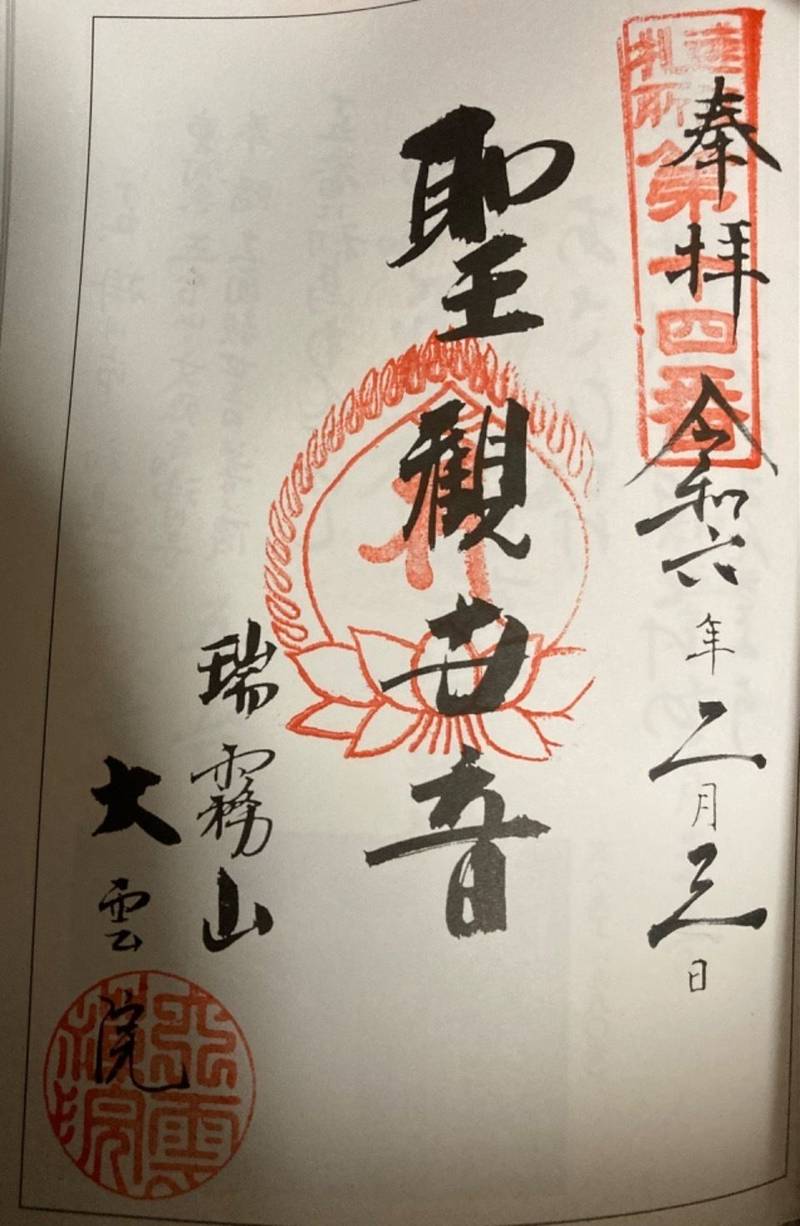 奉拝 令和六年二月三日
札所第十四番
聖觀世音
瑞霧山
大雲院